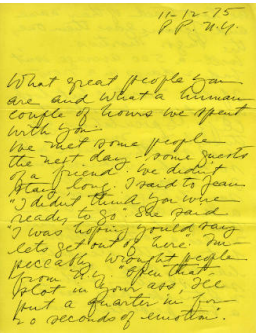 11-12-75
P.P. N.Y.
What great people you
are and what a human
couple of hours we spent
with you.
We met some people
the next day - some guests
of a friend. We didn't
stay long. I said to Jean
"I didn't think you were
ready to go." She said
"I was hoping you'd say
lets get out of here." Im-
peccably wrought people
from N.Y. "Open that
slot in your ass, I'll
put a quarter in for
20 seconds of emotion."